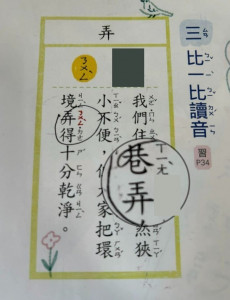 三 比一比讀音
習 P34
弄
我們住 然狹
巷弄
ㄒㄧㄤˋ
ㄋㄨㄥˋ
小不便， 大家把環
境弄得十分乾淨。